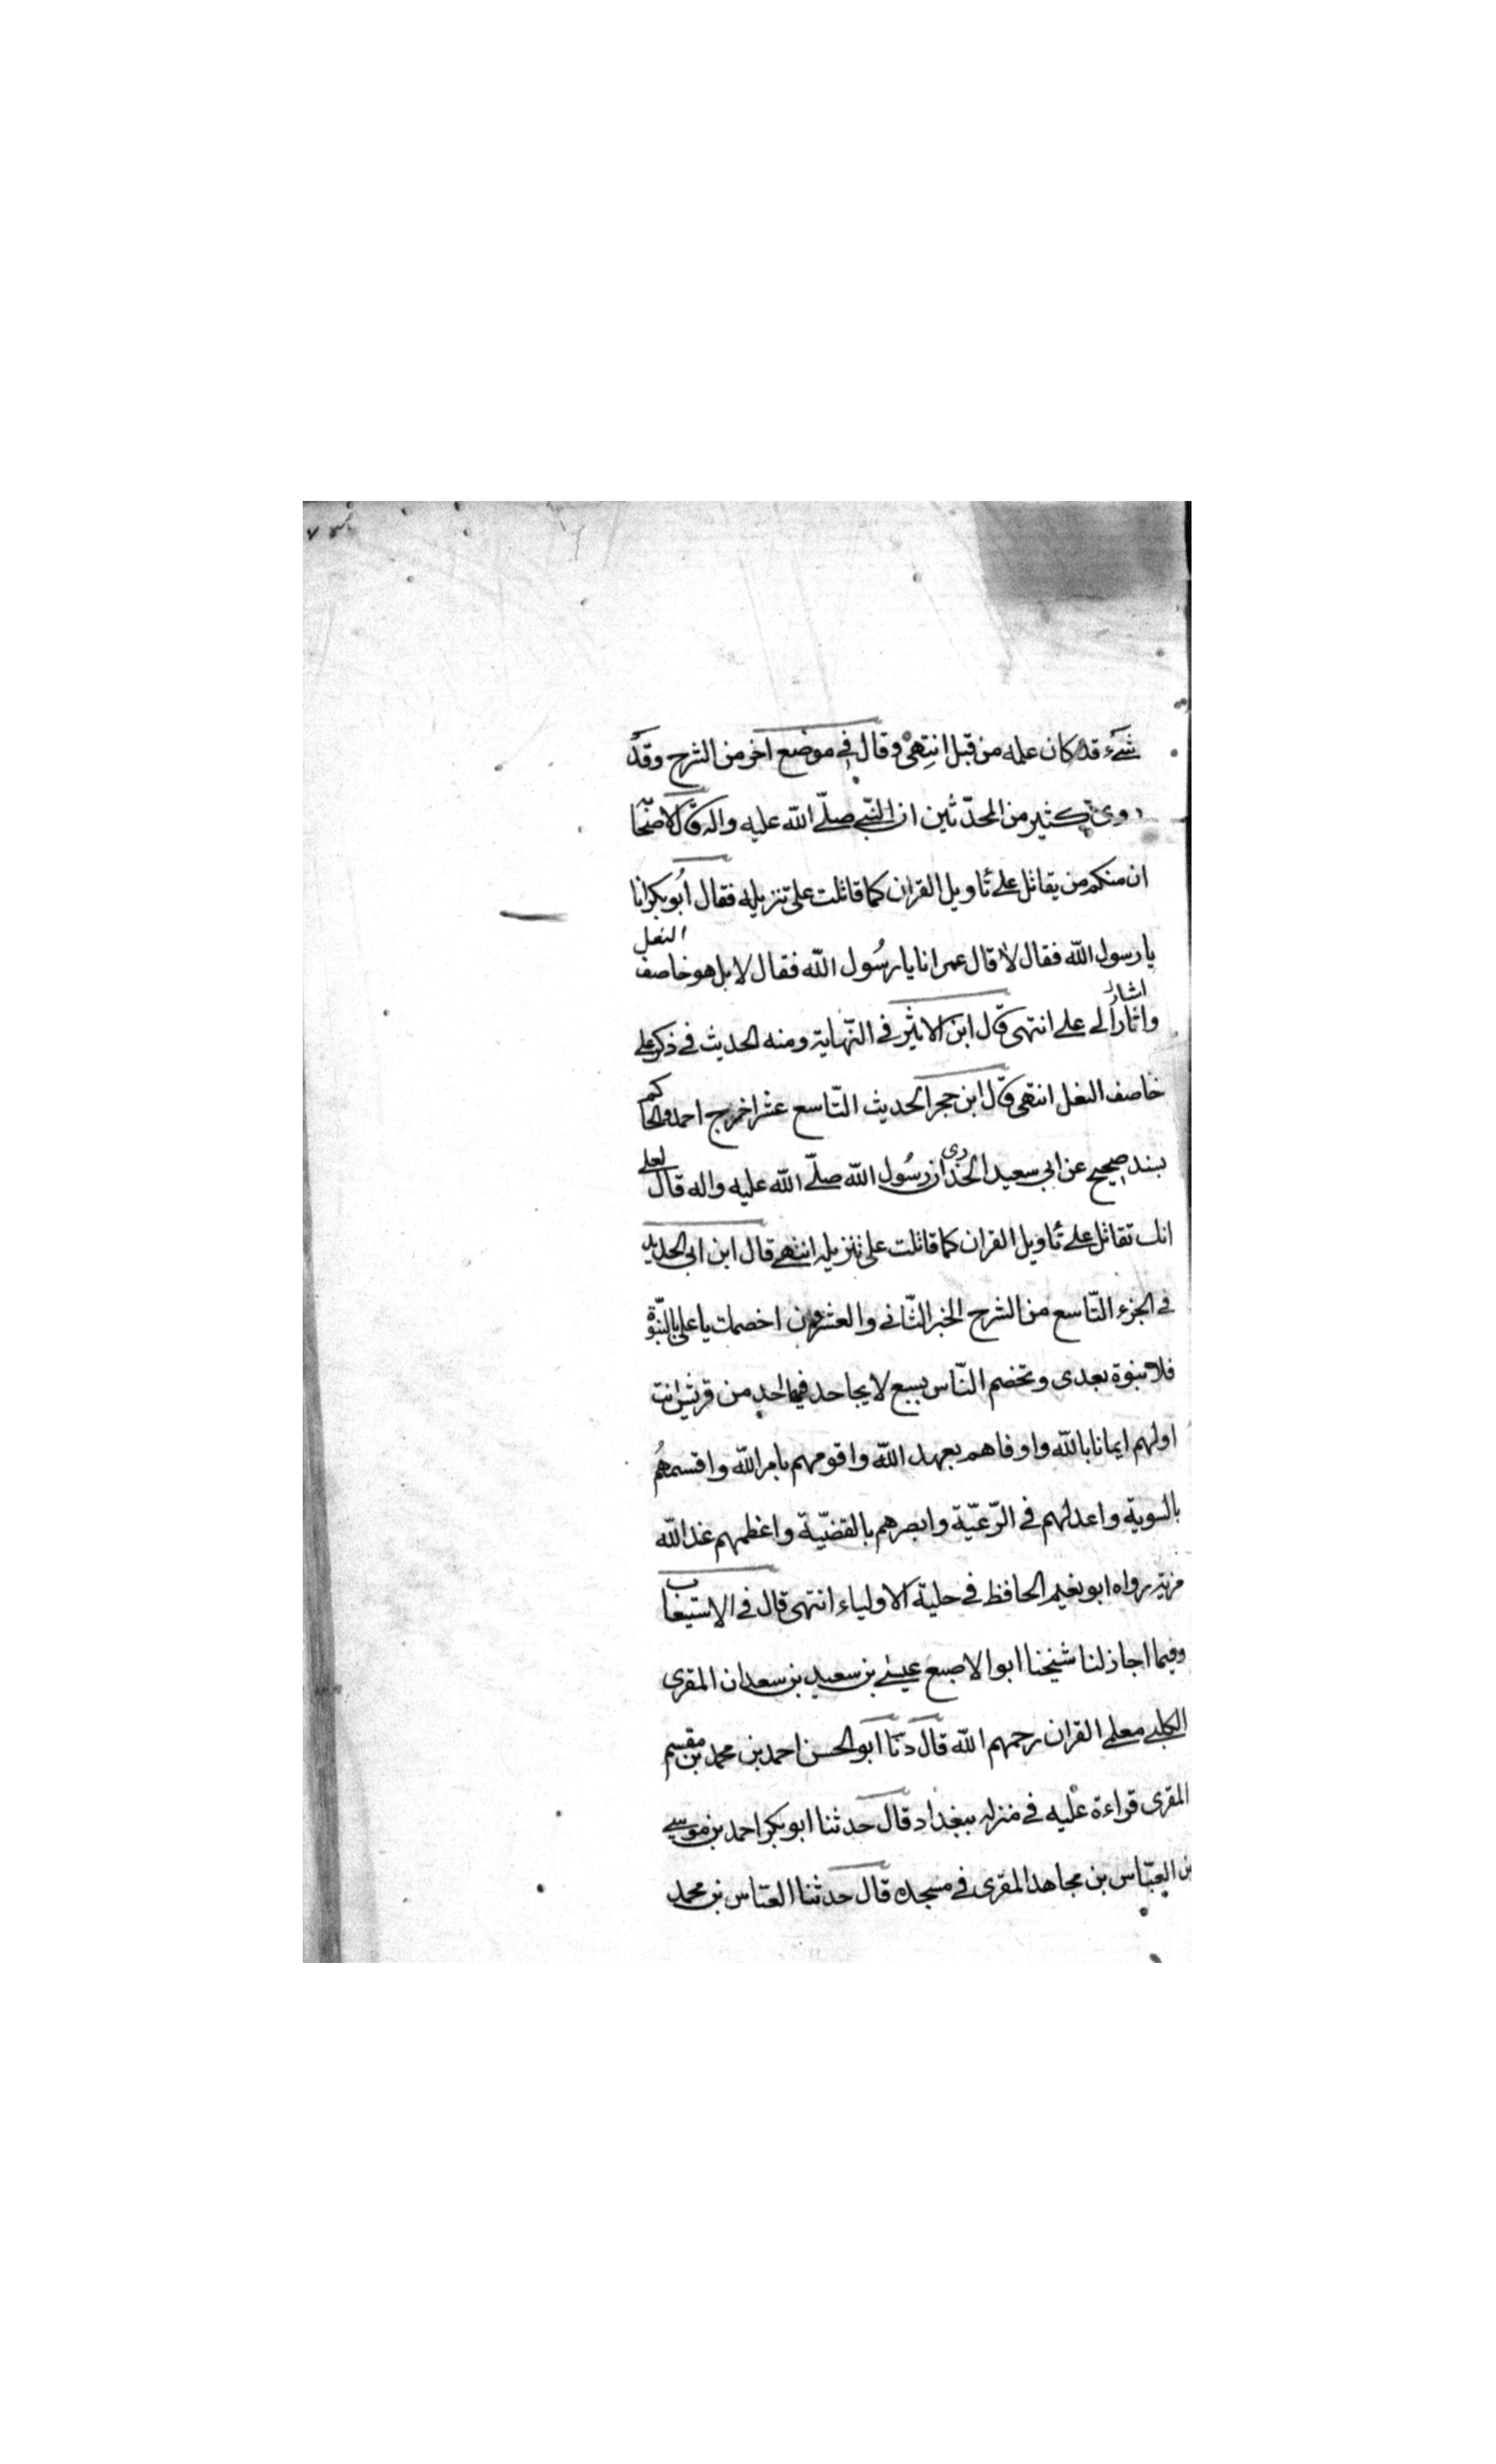 شیء قد كان علمه من قبل انتهى وقال في موضع اخر من الشرح وقد
روى كثير من المحدّثين ان النبي صلّى الله عليه واله قال لاصحا
ان منكم من يقاتل على تاويل القران كما قاتلت على تنزيله فقال أبو بكر انا
يا رسول الله فقال لا قال عمر انا يا رسُول الله فقال لا بل هو خاصف النعل
واشار إلى علي انتهى قال ابن الاثير في النّهاية ومنه الحديث في ذكر علي
خاصف النعل انتهى قال ابن حجر الحديث التّاسع عشر اخرج احمد والحاكم
بسند صحيح عن ابي سعيد الخدرى ان رسُول الله صلّى الله عليه واله قال لعلي
انك تقاتل على تاويل القران كما قاتلت على تنزيله انتهى قال ابن ابي الحديد
في الجزء التّاسع من الشرح الخبر الثّاني والعشرون اخصمك يا علي بالنبّوة
فلا نبوة بعدى وتخصم النّاس بسبع لا يجاحد فيها احد من قريش انت
اولهم ايمانا بالله واوفاهم بعهد الله واقومهم بامر الله واقسمهُم
بالسوية واعدلهم في الرّعيّة وابصرهم بالقضيّة واعظمهم عند الله
مزية رواه ابو نعيم الحافظ في حلية الاولياء انتهى قال في الاستيعاب
وفيما اجاز لنا شيخنا ابو الاصبع عيسى بن سعيد بن سعدان المقرى
الكلبي معلمي القران رحمهم الله قال دنّا ابو الحسن احمد بن محمد بن مقسم
المقرى قراءة عليه في منزله ببغداد قال حدثنا ابو بكر احمد بن موسى
بن العبّاس بن مجاهد المقرى في مسجده قال حدثنا العبّاس بن محمد